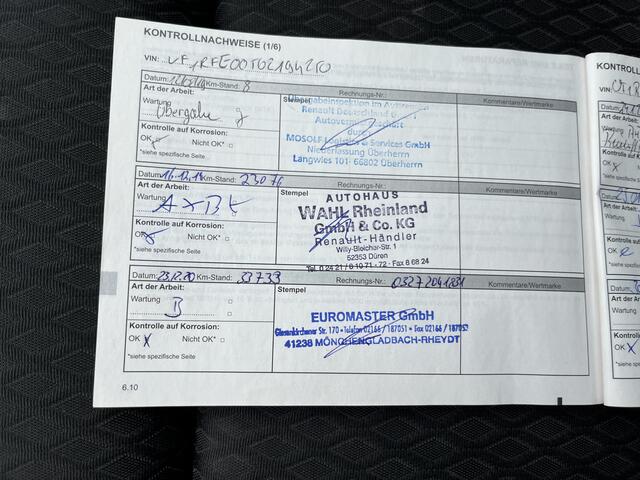 KONTROLLNACHWEISE (1/6)
VIN: VF1RFE00
Datum: Km-Stand: 8 Rechnungs-Nr.: Kommentare/Wertmarke
Art der Arbeit:
Wartung Übergabe
Stempel
Übergabeinspektion im Auftrag
Renault Deutschland
Autovermietschaft
durch
MOSOLF Logistics & Services GmbH
Niederlassung Überherrn
Langwies 101· 66802 Überherrn
Kontrolle auf Korrosion:
OK Nicht OK*
*siehe spezifische Seite
Datum: 16.12.18 Km-Stand: 23076 Rechnungs-Nr.: Kommentare/Wertmarke
Art der Arbeit:
Wartung
Stempel
AUTOHAUS
WAHL Rheinland
GmbH & Co. KG
Renault-Händler
Willy-Bleicher-Str. 1
52353 Düren
Tel. 0 24 21 / 8 10 71 - 72 · Fax 8 68 24
Kontrolle auf Korrosion:
OK Nicht OK*
*siehe spezifische Seite
Datum: 23.12.20 Km-Stand: 33739 Rechnungs-Nr.: Kommentare/Wertmarke
Art der Arbeit:
Wartung B
Stempel
EUROMASTER GmbH
Giesenkirchener Str. 170 • Telefon 02166 / 187051 • Fax 02166 / 187052
41238 MÖNCHENGLADBACH-RHEYDT
Kontrolle auf Korrosion:
OK X Nicht OK*
*siehe spezifische Seite
6.10
KONTROLL
VIN:
Datum:
Art der Arbeit:
Wartung
Kontrolle au
OK
*siehe spezifi
Art der Arb
Wartung
Kontrolle
OK
*siehe spezi
Datum:
Art der A
Wartung
Kontrolle
OK
*siehe spe